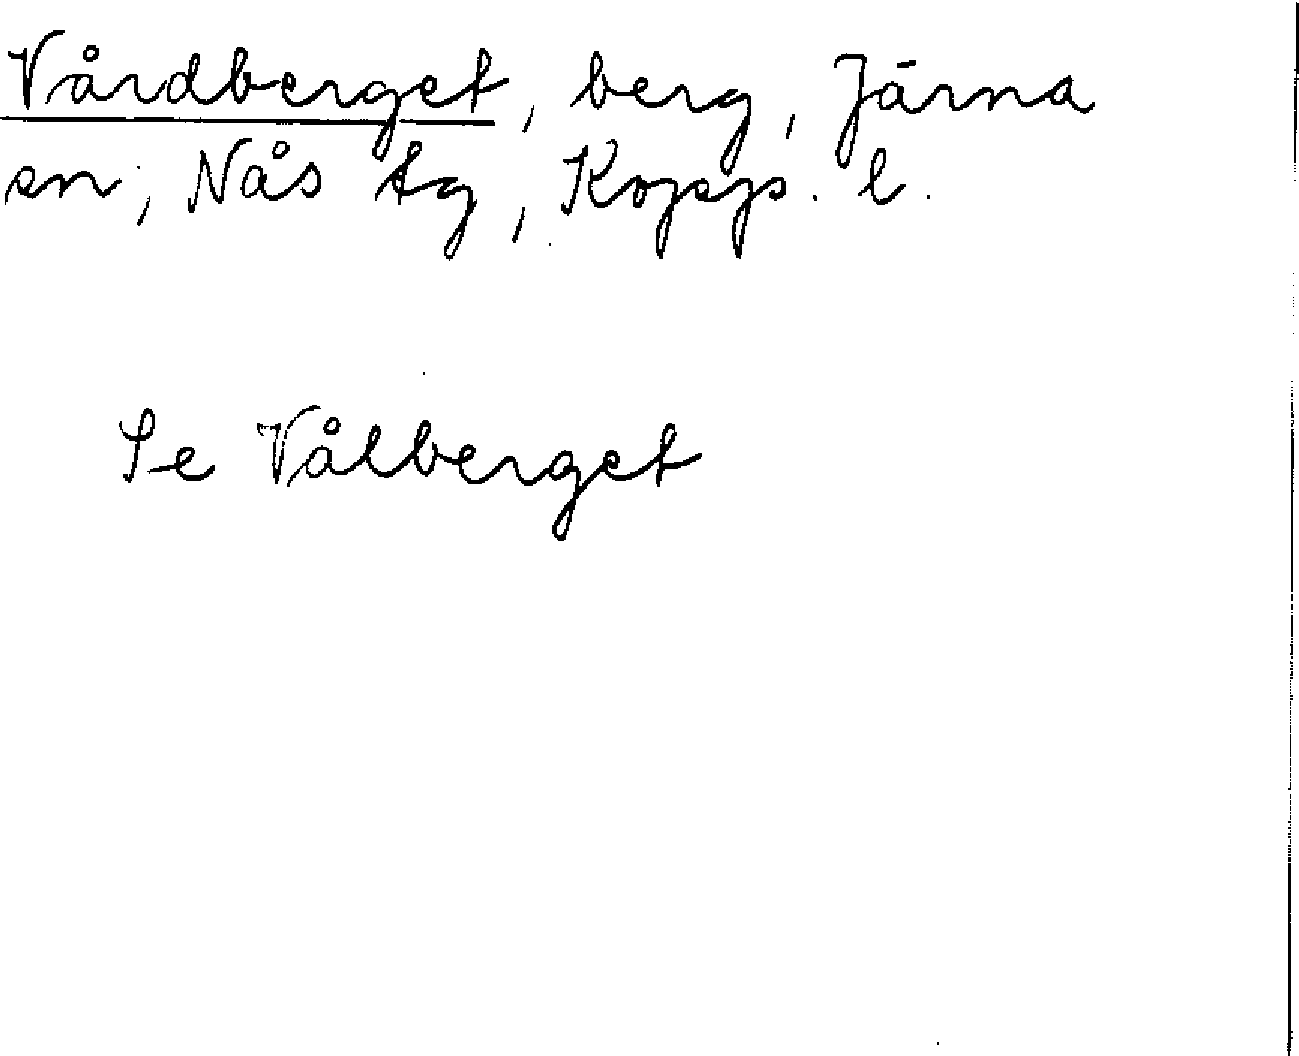 Vårdberget, berg, Järna
sn, Nås tg, Kopp. l.
Se Vålberget